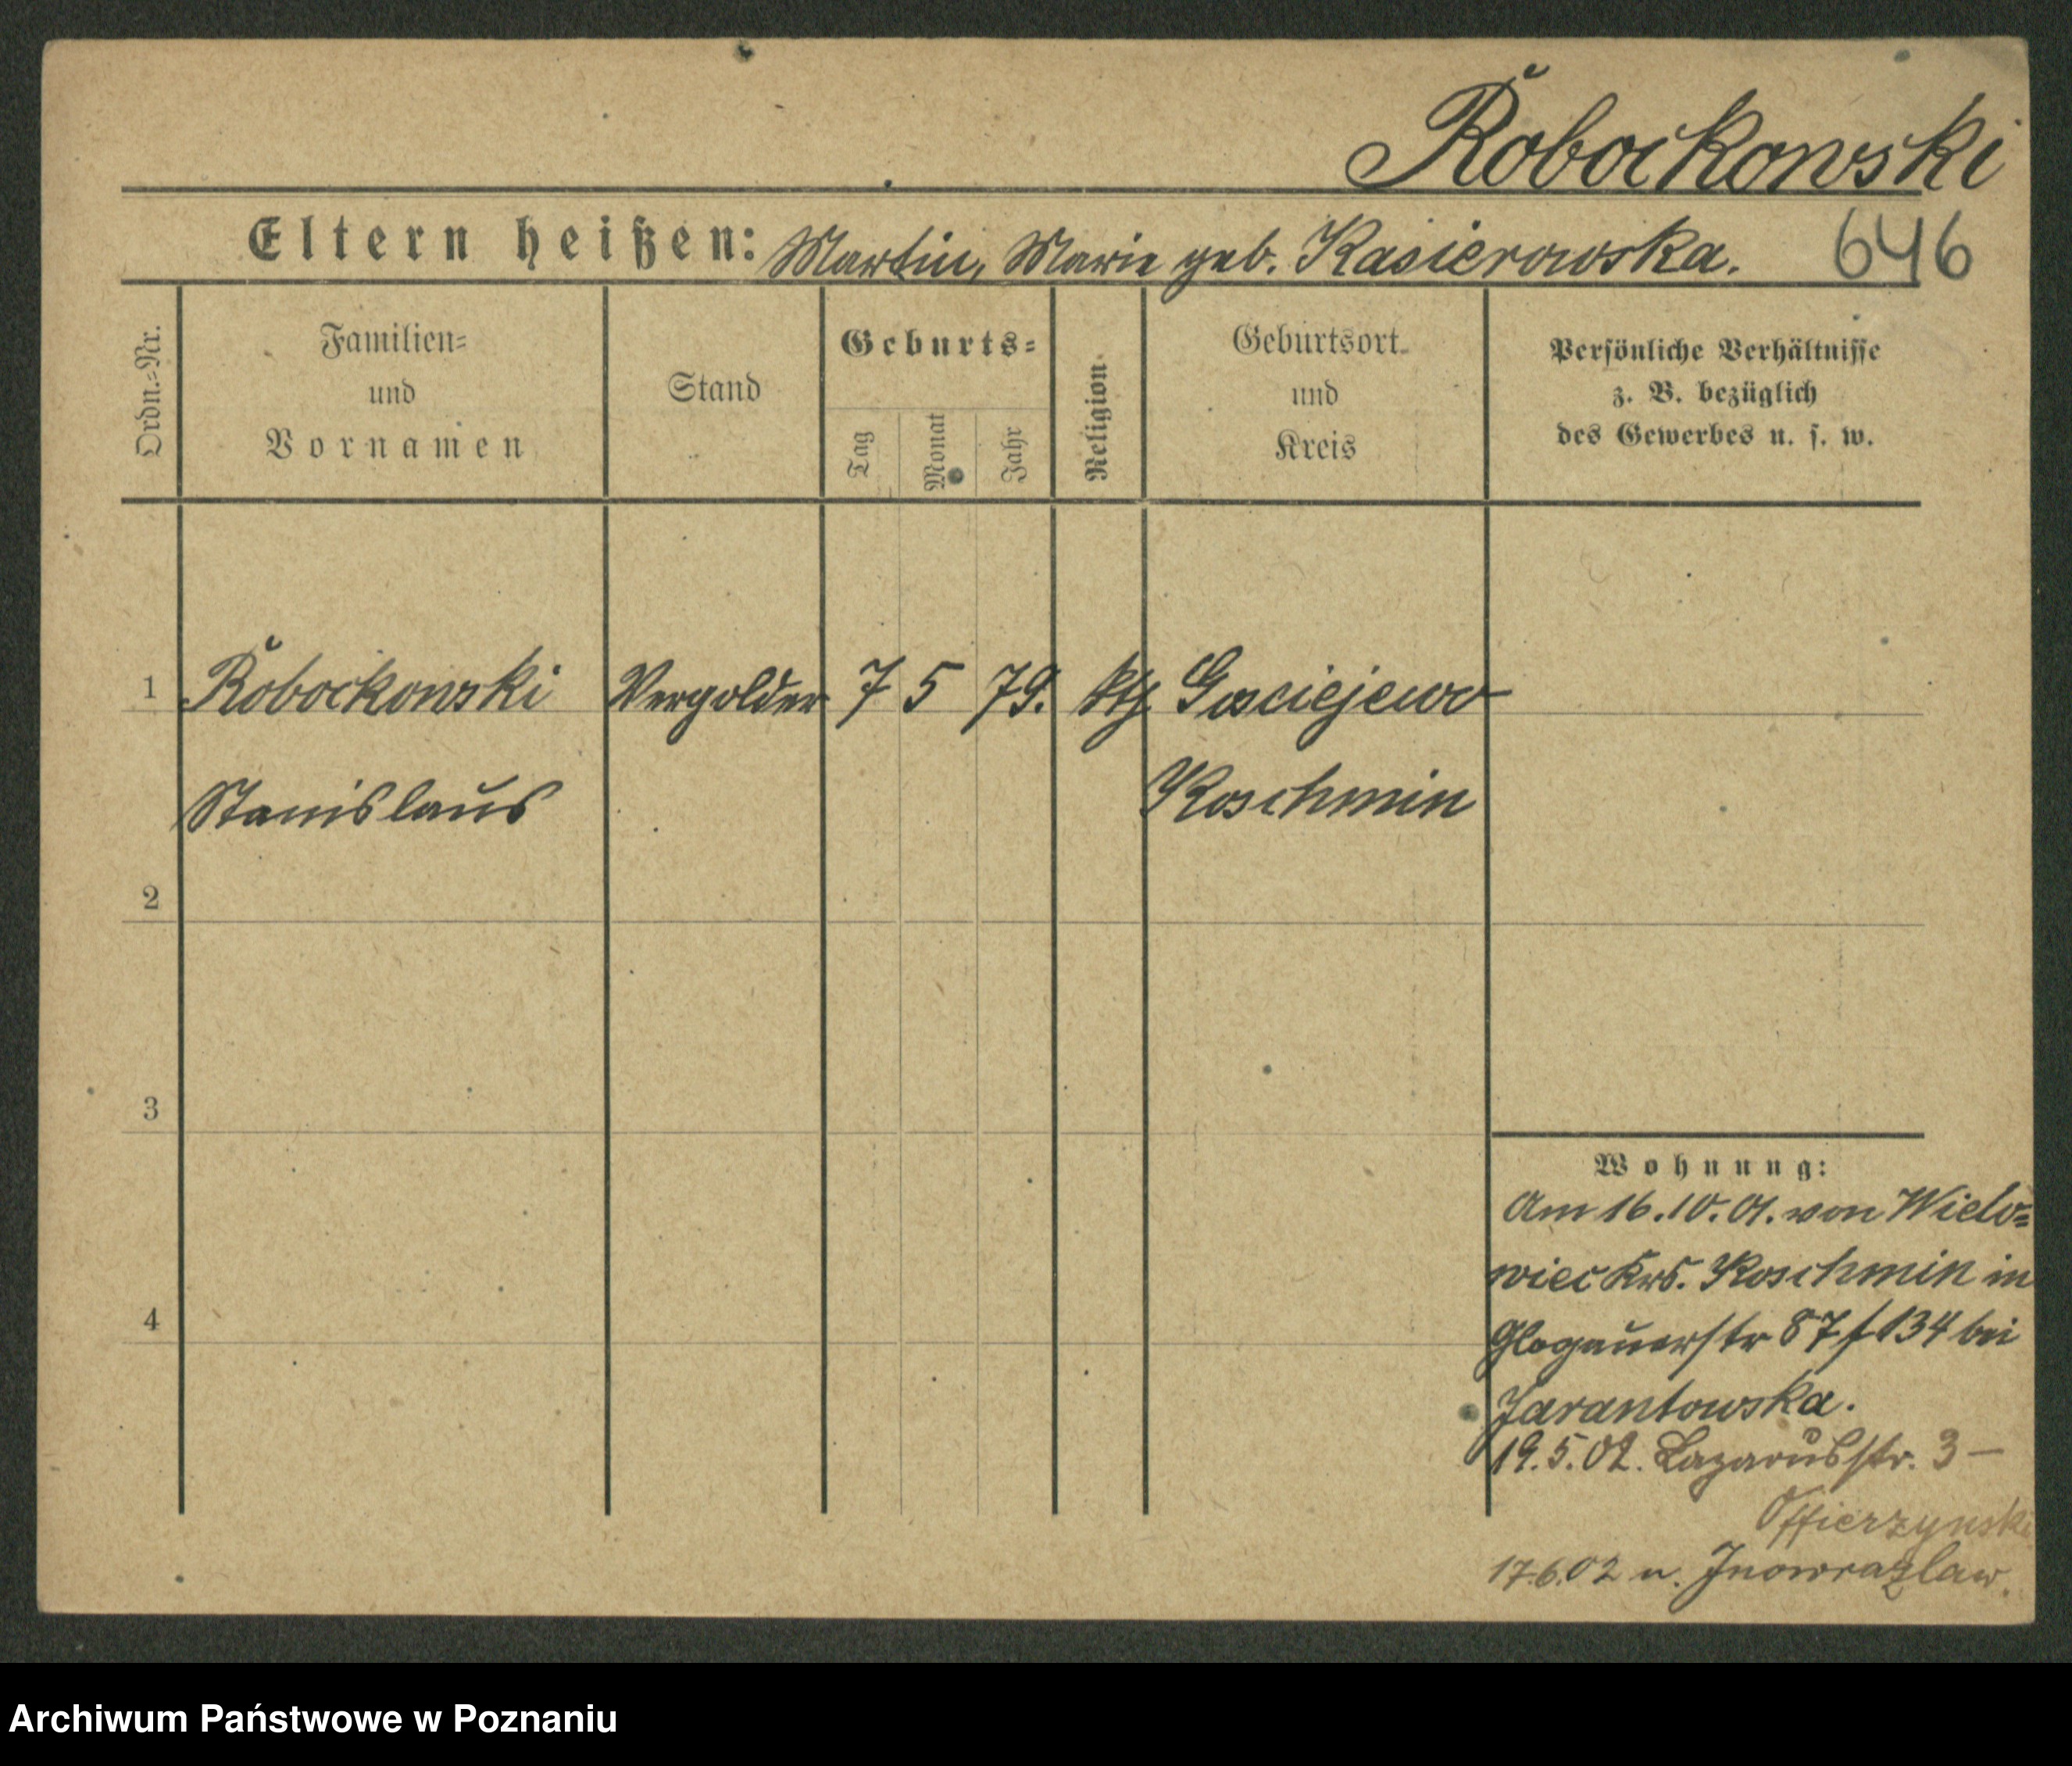 Řobockowski
Eltern heißen: Martin, Marie geb. Kasierowska. 646
Ordn.=Nr.
Familien=
und
Vornamen
Stand
Geburts=
Tag
Monat
Jahr
Religion
Geburtsort
und
Kreis
Persönliche Verhältnisse
z. B. bezüglich
des Gewerbes u. s. w.
1 Řobockowski Vergolder 7 5 79. kth Gosciejewo
Stanislaus Koschmin
2
3
4
Wohnung:
Am 16.10.01. von Wielo=
wiec Krs. Koschmin in
Glogauerstr 87 f 134 bei
Jarantowska.
19.5.02. Lazarusstr. 3 –
Offierzynski
17.6.02 n. Inowrazlaw.
Archiwum Państwowe w Poznaniu